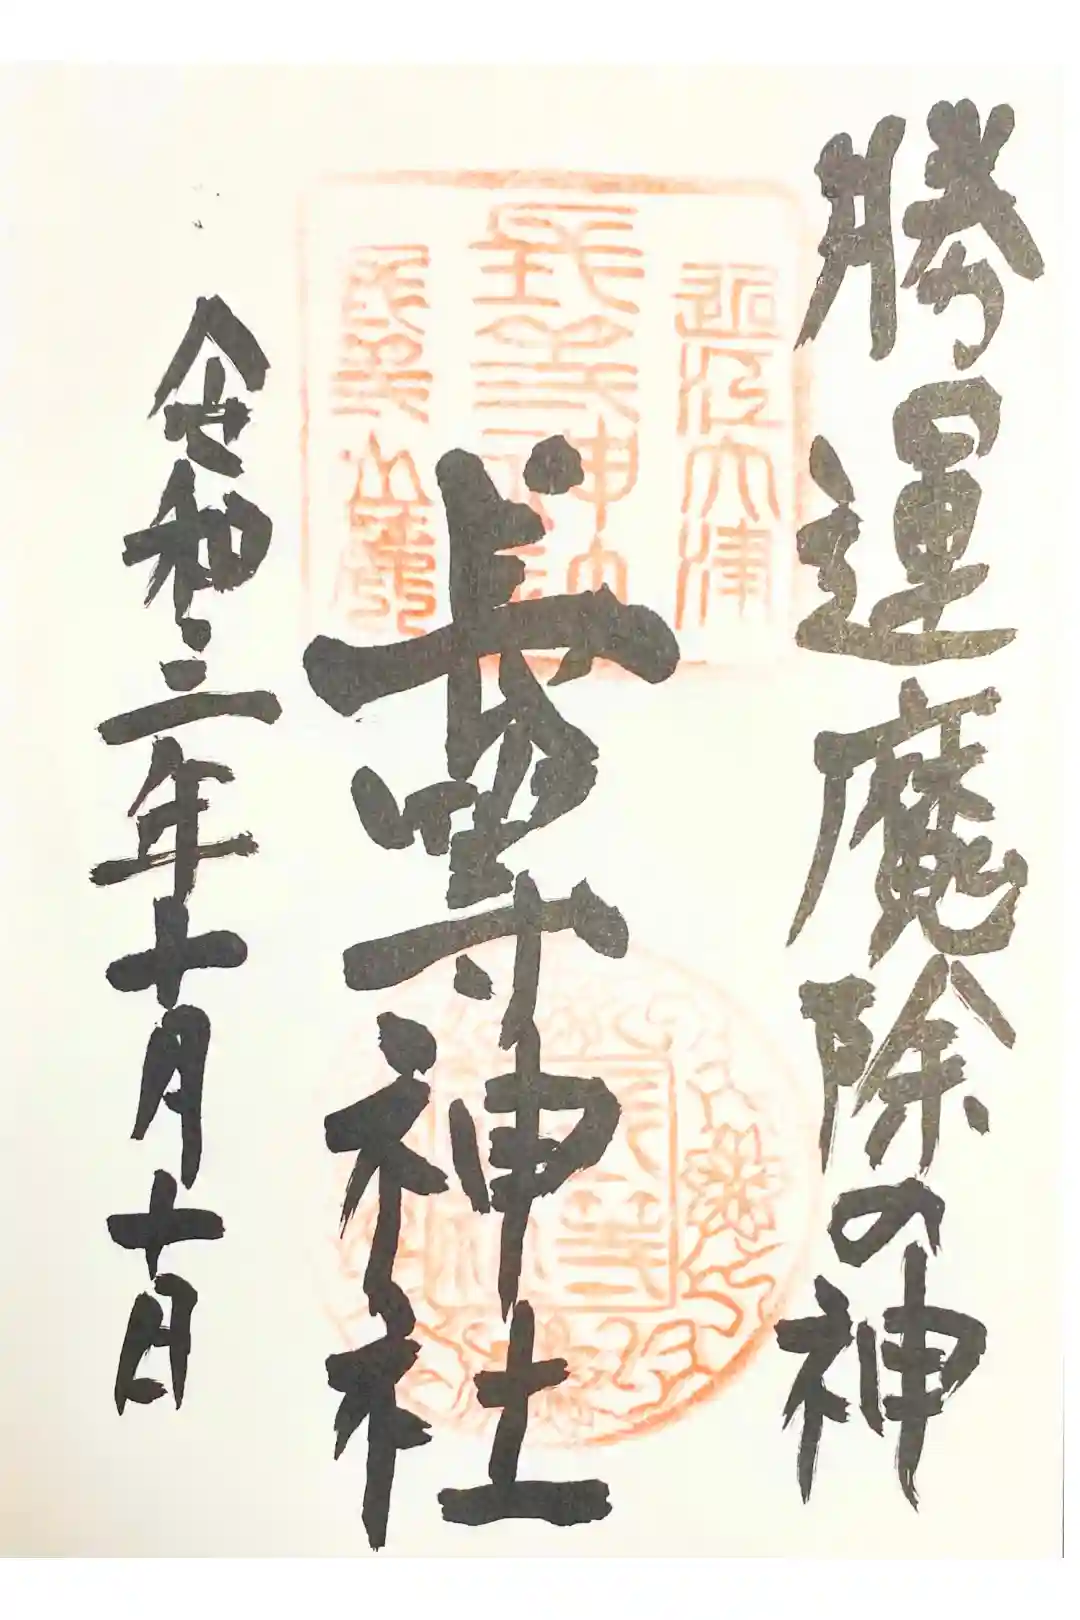 勝運魔除の神
近江大津
長等神社
長等山麓
長等神社
令和三年十月十日